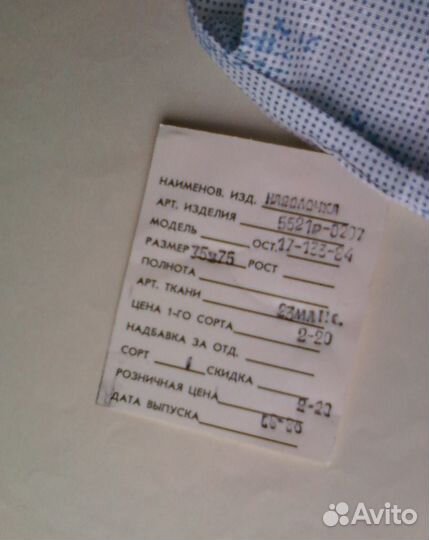 НАИМЕНОВ. ИЗД. НАВОЛОЧКА
АРТ. ИЗДЕЛИЯ 5521р-0207
МОДЕЛЬ ОСТ. 17-133-84
РАЗМЕР 75х75 РОСТ
ПОЛНОТА
АРТ. ТКАНИ
ЦЕНА 1-ГО СОРТА 2-20
НАДБАВКА ЗА ОТД.
СОРТ 1 СКИДКА
РОЗНИЧНАЯ ЦЕНА 2-20
ДАТА ВЫПУСКА
Avito